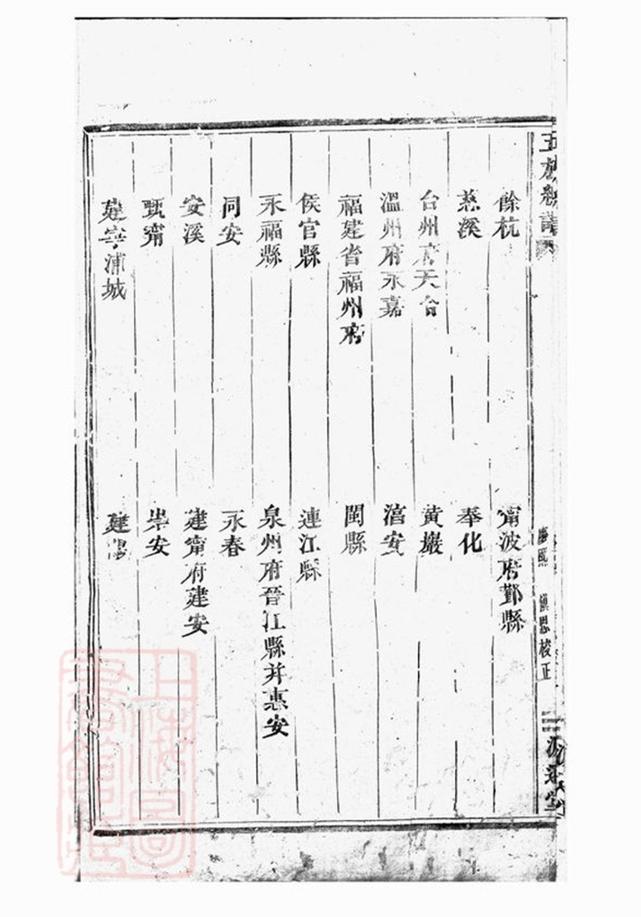 校正
餘杭　甯波府鄞縣
慈溪　奉化
台州府天台　黃巖
溫州府永嘉　安
福建省福州府　閩縣
侯官縣　連江縣
永福縣　泉州府晉江縣并惠安
同安　永春
安溪　建甯府建安
甌甯　崇安
建寧浦城　建陽
上海圖書館藏